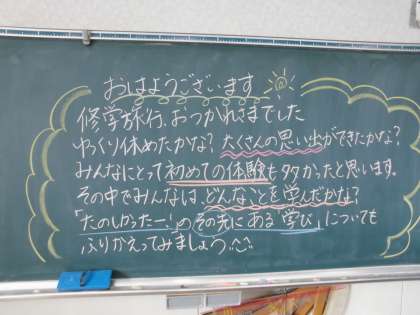 おはようございます
修学旅行、おつかれさまでした
ゆっくり休めたかな？たくさんの思い出ができたかな？
みんなにとって初めての体験も多かったと思います。
その中でみんなは、どんなことを学んだかな？
「たのしかったー！」のその先にある「学び」についても
ふりかえってみましょう